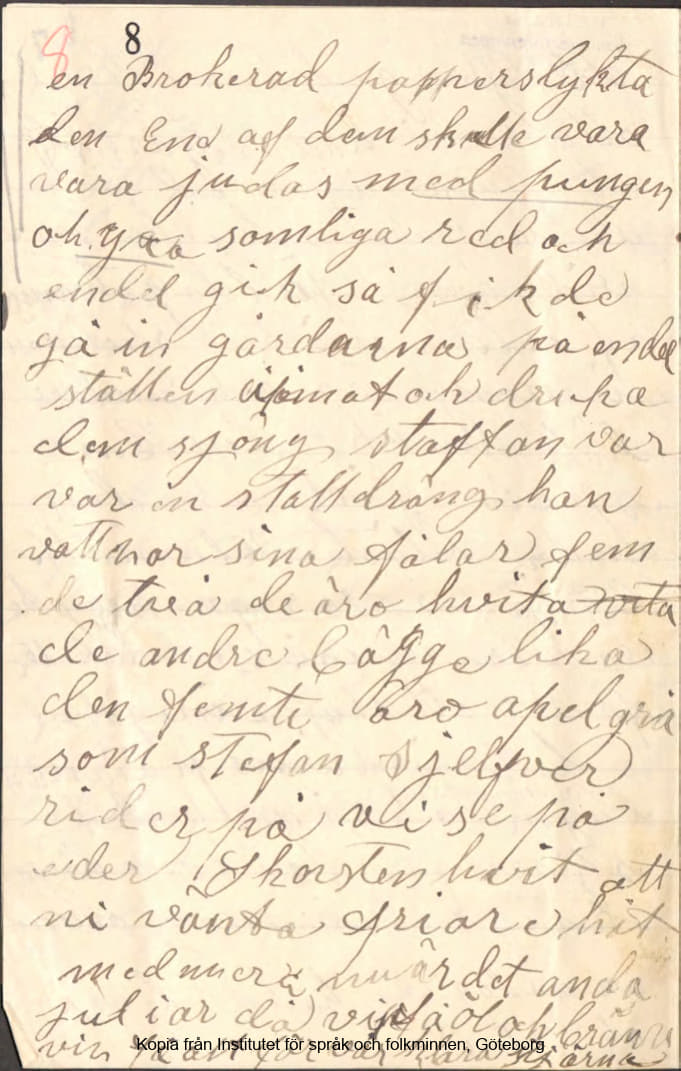 8 8
en Brokerad papperslykta
den End af dem skulle vara
vara judas med pungen
oh. yxa somliga red och
endel gick så fik de
gå in gårdarna på endel
ställen mat och dricka
dem sjöng staffan var
var en stalldräng han
vattnar sina fålar fem
de två de äro hvita vita
de andre bägge lika
den femte äro apelgrå
som stefan sjelfver
rider på vi se på
eder Skorsten hvit att
ni vänta friare hit
med mera nu är det anda
jul i år då vi få öl och bränn
vin för vår stjärna
Kopia från Institutet för språk och folkminnen, Göteborg